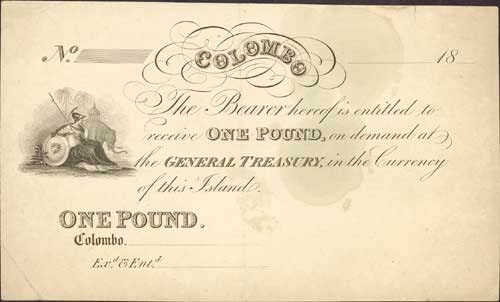 No.
COLOMBO
18
The Bearer hereof is entitled to
receive ONE POUND, on demand at
the GENERAL TREASURY, in the Currency
of this Island.
ONE POUND.
Colombo.
Ex.d & Ent.d